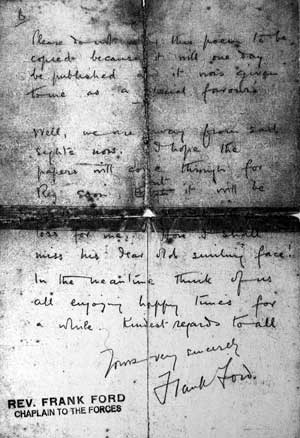 Please do not allow this poem to be
copied because it will one day
be published and it was given
to me as a special favour
Well, we are away from sad
sights now. I hope the
papers will come through for
Reg soon but it will be
loss for me. I shall
miss his dear old smiling face!
In the meantime think of us
all enjoying happy times for
a while. Kindest regards to all
Yours very sincerely
Frank Ford.
REV. FRANK FORD
CHAPLAIN TO THE FORCES